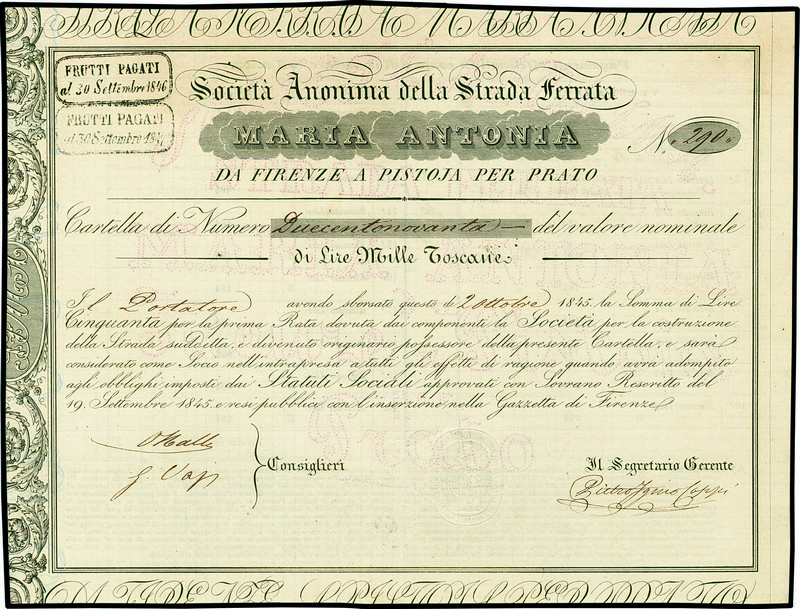 FRUTTI PAGATI
al 30 Settembre 1846
FRUTTI PAGATI
al 30 Settembre 184
Società Anonima della Strada Ferrata
MARIA ANTONIA
N. 290.
DA FIRENZE A PISTOJA PER PRATO
Cartella di Numero Duecentonovanta — del valore nominale
di Lire Mille Toscane
Il Portatore avendo sborsato questo dì 2 Ottobre 1845. la Somma di Lire
Cinquanta per la prima Rata dovuta dai componenti la Società per la costruzione
della Strada suddetta, è divenuto originario possessore della presente Cartella, e sarà
considerato come Socio nell'intrapresa a tutti gli effetti di ragione quando avrà adempito
agli obblighi imposti dai Statuti Sociali approvati con Sovrano Rescritto del
19. Settembre 1845. e resi pubblici con l'inserzione nella Gazzetta di Firenze
Consiglieri
Il Segretario Gerente